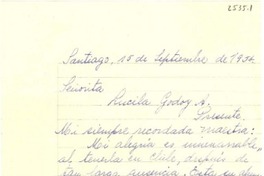 25358
Santiago, 15 de Septiembre de 1954
Señorita
Lucila Godoy A.
Presente.
Mi siempre recordada Maestra:
Mi alegria es inenarrable,
al tenerla en Chile, después de
tan larga ausencia. Esta su